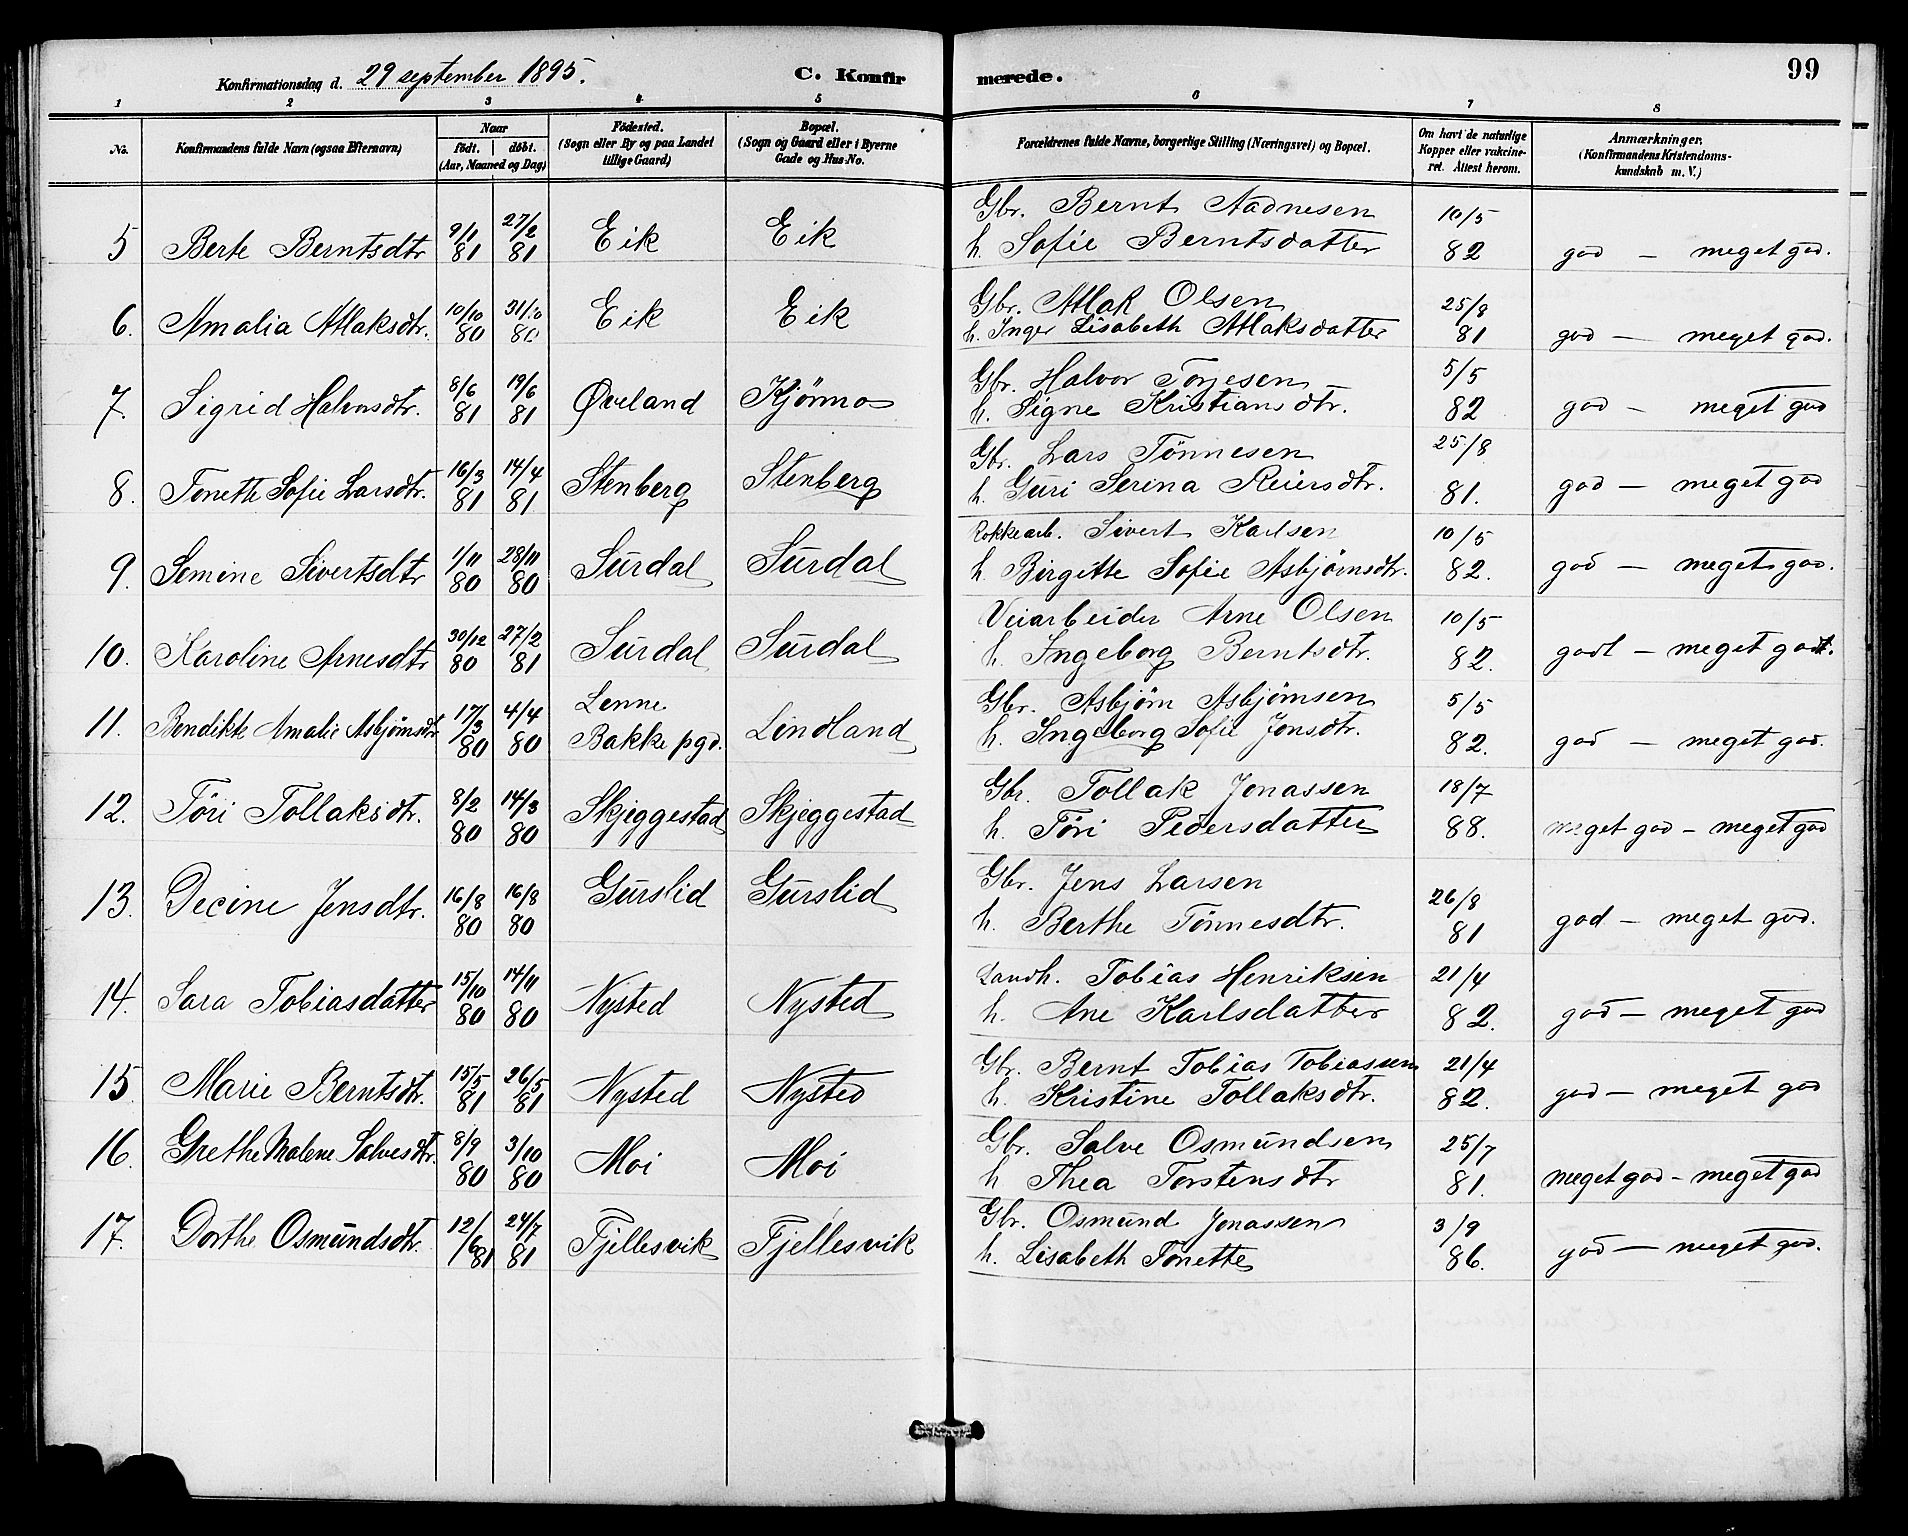 Konfirmationsdag d. 29 september 1895. C. Konfirmerede. 99
1 2 3 4 5 6 7 8
No. Konfirmandens fulde Navn (ogsaa Efternavn) Naar født. døbt. (Aar, Maaned og Dag) Fødested. (Sogn eller By og paa Landet tillige Gaard) Bopæl. (Sogn og Gaard eller i Byerne Gade og Hus-No. Forældrenes fulde Navne, borgerlige Stilling (Næringsvei) og Bopæl. Om havt de naturlige Kopper eller vakcineret. Attest herom. Anmærkninger. (Konfirmandens Kristendomskundskab m. V.)
5 Berte Berntsdtr 9/1 81 27/2 81 Eik Eik Gbr. Bernt Aadnesen 10/5
h. Sofie Berntsdatter 82 god – meget god.
6. Amalia Atlaksdtr. 10/10 80 31/10 80 Eik Eik Gbr. Atlak Olsen 25/8
h. Inger Lisabeth Atlaksdatter 81 god – meget god.
7. Sigrid Halvorsdtr. 8/6 81 19/6 81 Øveland Kjörmo Gbr. Halvor Torjesen 5/5
h. Signe Kristiansdtr. 82 god – meget god
8. Tonette Sofie Larsdtr. 16/3 81 14/4 81 Stenberg Stenberg Gbr. Lars Tönnesen 25/8
h. Guri Serina Reiersdtr. 81. god – meget god
9. Semine Sivertsdtr 1/11 80 28/11 80 Surdal Surdal Rokkearb. Sivert Karlsen 10/5
h. Birgitte Sofie Asbjörnsdtr. 82. god – meget god.
10. Karoline Arnesdtr 30/12 80 27/2 81 Surdal Surdal Veiarbeider Arne Olsen 10/5
h. Ingeborg Berntsdtr. 82. godt – meget godt.
11. Bendikte Amalie Asbjörnsdtr 17/3 80 4/4 80 Lenne Bakke pgd. Lindland Gbr. Asbjörn Asbjörnsen 5/5
h. Ingeborg Sofie Jonsdtr. 82. god – meget god.
12. Töri Tollaksdtr. 8/2 80 14/3 80 Skjeggestad Skjeggestad Gbr. Tollak Jonassen 18/7
h. Töri Pedersdatter 88. meget god – meget god
13. Decine Jensdtr. 16/8 80 16/8 80 Gurslid Gurslid Gbr. Jens Larsen 26/8
h. Berthe Tönnesdtr. 81 god – meget god.
14. Sara Tobiasdatter 15/10 80 14/11 80 Nysted Nysted Landh. Tobias Henriksen 21/4
h. Ane Karlsdatter 82. god – meget god
15 Marie Berntsdtr. 15/5 81 26/5 81 Nysted Nysted Gbr. Bernt Tobias Tobiassen 21/4
h. Kristine Tollaksdtr. 82. god – meget god
16. Grethe Malene Salvesdtr. 8/9 80 3/10 80 Moi Moi Gbr. Salve Osmundsen 25/7
h Thea Torstensdtr 81. meget god – meget god
17. Dorthe Osmundsdtr. 12/6 81 24/7 81 Fjellesvik Fjellesvik Gbr. Osmund Jonassen 3/9
h. Lisabeth Tonette 86. god – meget god.